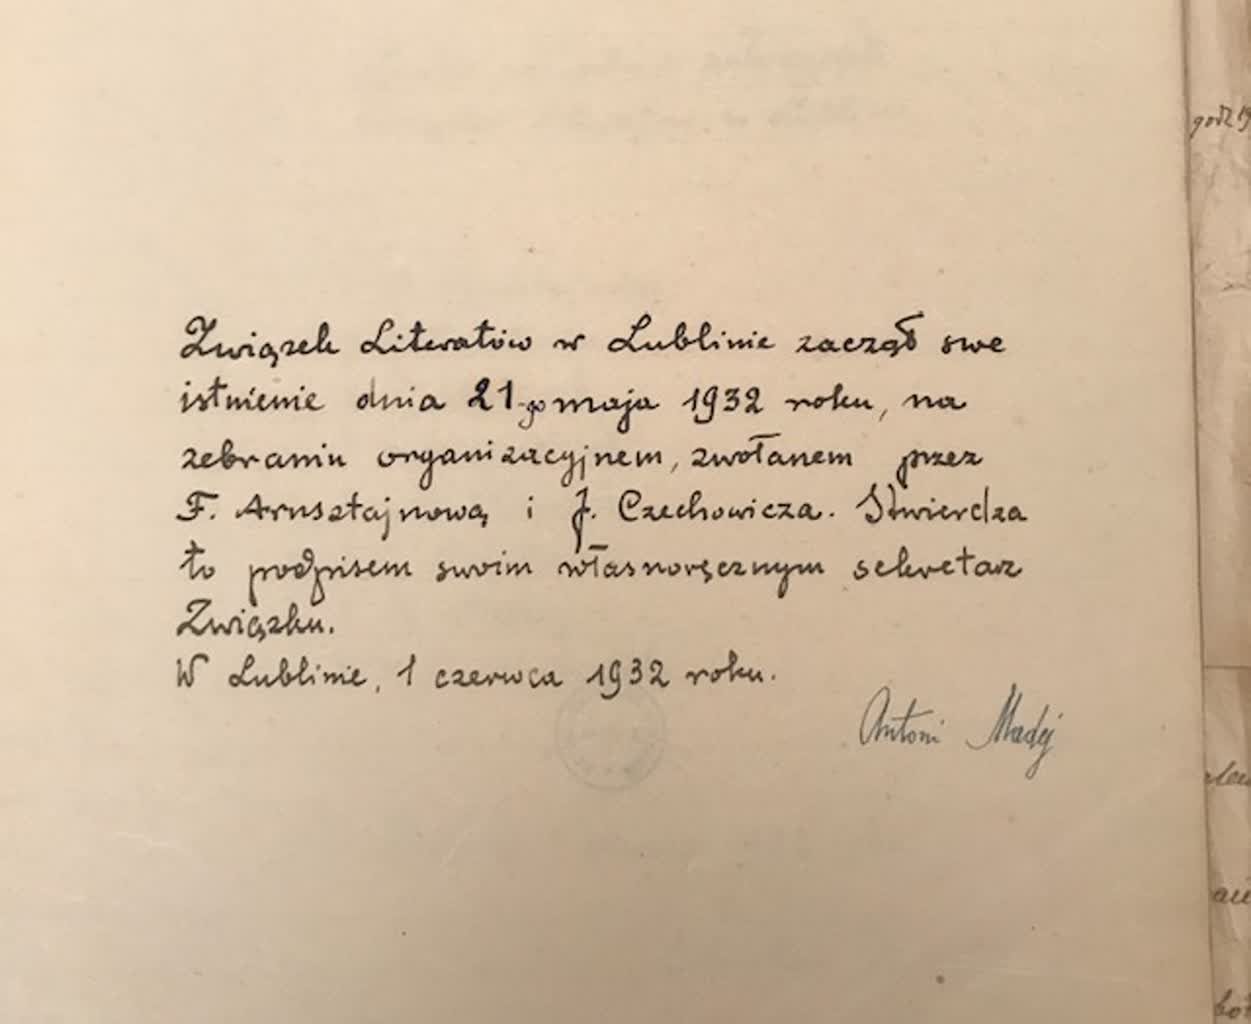 Związek Literatów w Lublinie zaczął swe
istnienie dnia 21-go maja 1932 roku, na
zebraniu organizacyjnem, zwołanem przez
F. Arnsztajnową i J. Czechowicza. Stwierdza
to podpisem swoim własnoręcznym sekretarz
Związku.
W Lublinie, 1 czerwca 1932 roku.
Antoni Madej